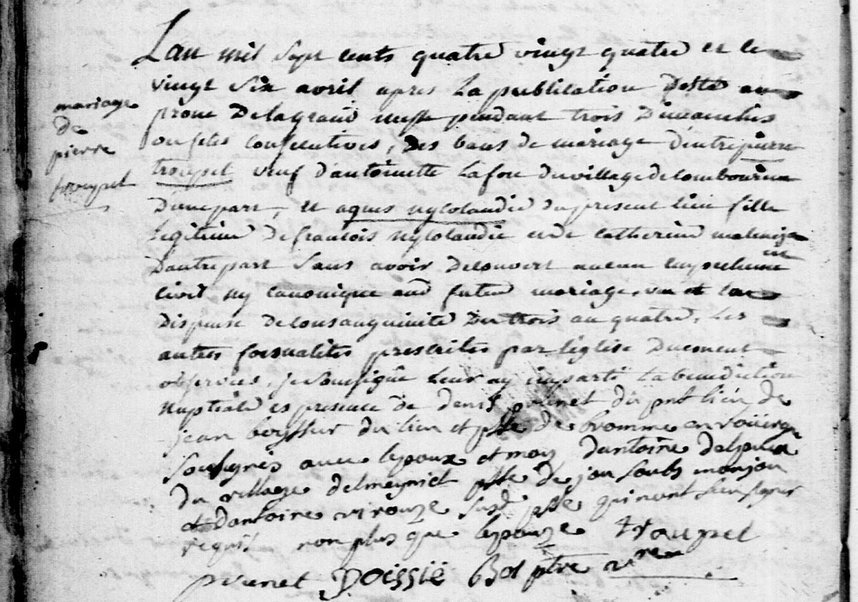 mariage
de
pierre
troupel
Lan mil sept cents quatre vingt quatre et le
vingt six avril apres la publication faite au
prone de la grand messe pendant trois dimanches
ou fetes consecutives, des bans de mariage d'entre pierre
troupel veuf d'antoinette Lafon du village de
d'une part, et agnes du present lieu fille
legitime de francois et de catherine
d'autre part sans avoir decouvert aucun empechement
civil ny canonique aud futur mariage, vu et la
dispense de consanguinité du trois au quatre, les
autres formalités prescrites par l'église duement
observées, je soussigné leur ay imparti la benediction
nuptiale es presence de denis prunet du pnt lieu de
jean du lieu et psse de bromme en rouergue
soussignés avec lepoux et moy d'antoine
du village delmeyniel psse de jou soubs monjou
et d'antoine virouze susd psse qui n'ont seu signer
requis non plus que lepouze troupel
prunet Doissié Bol ptre